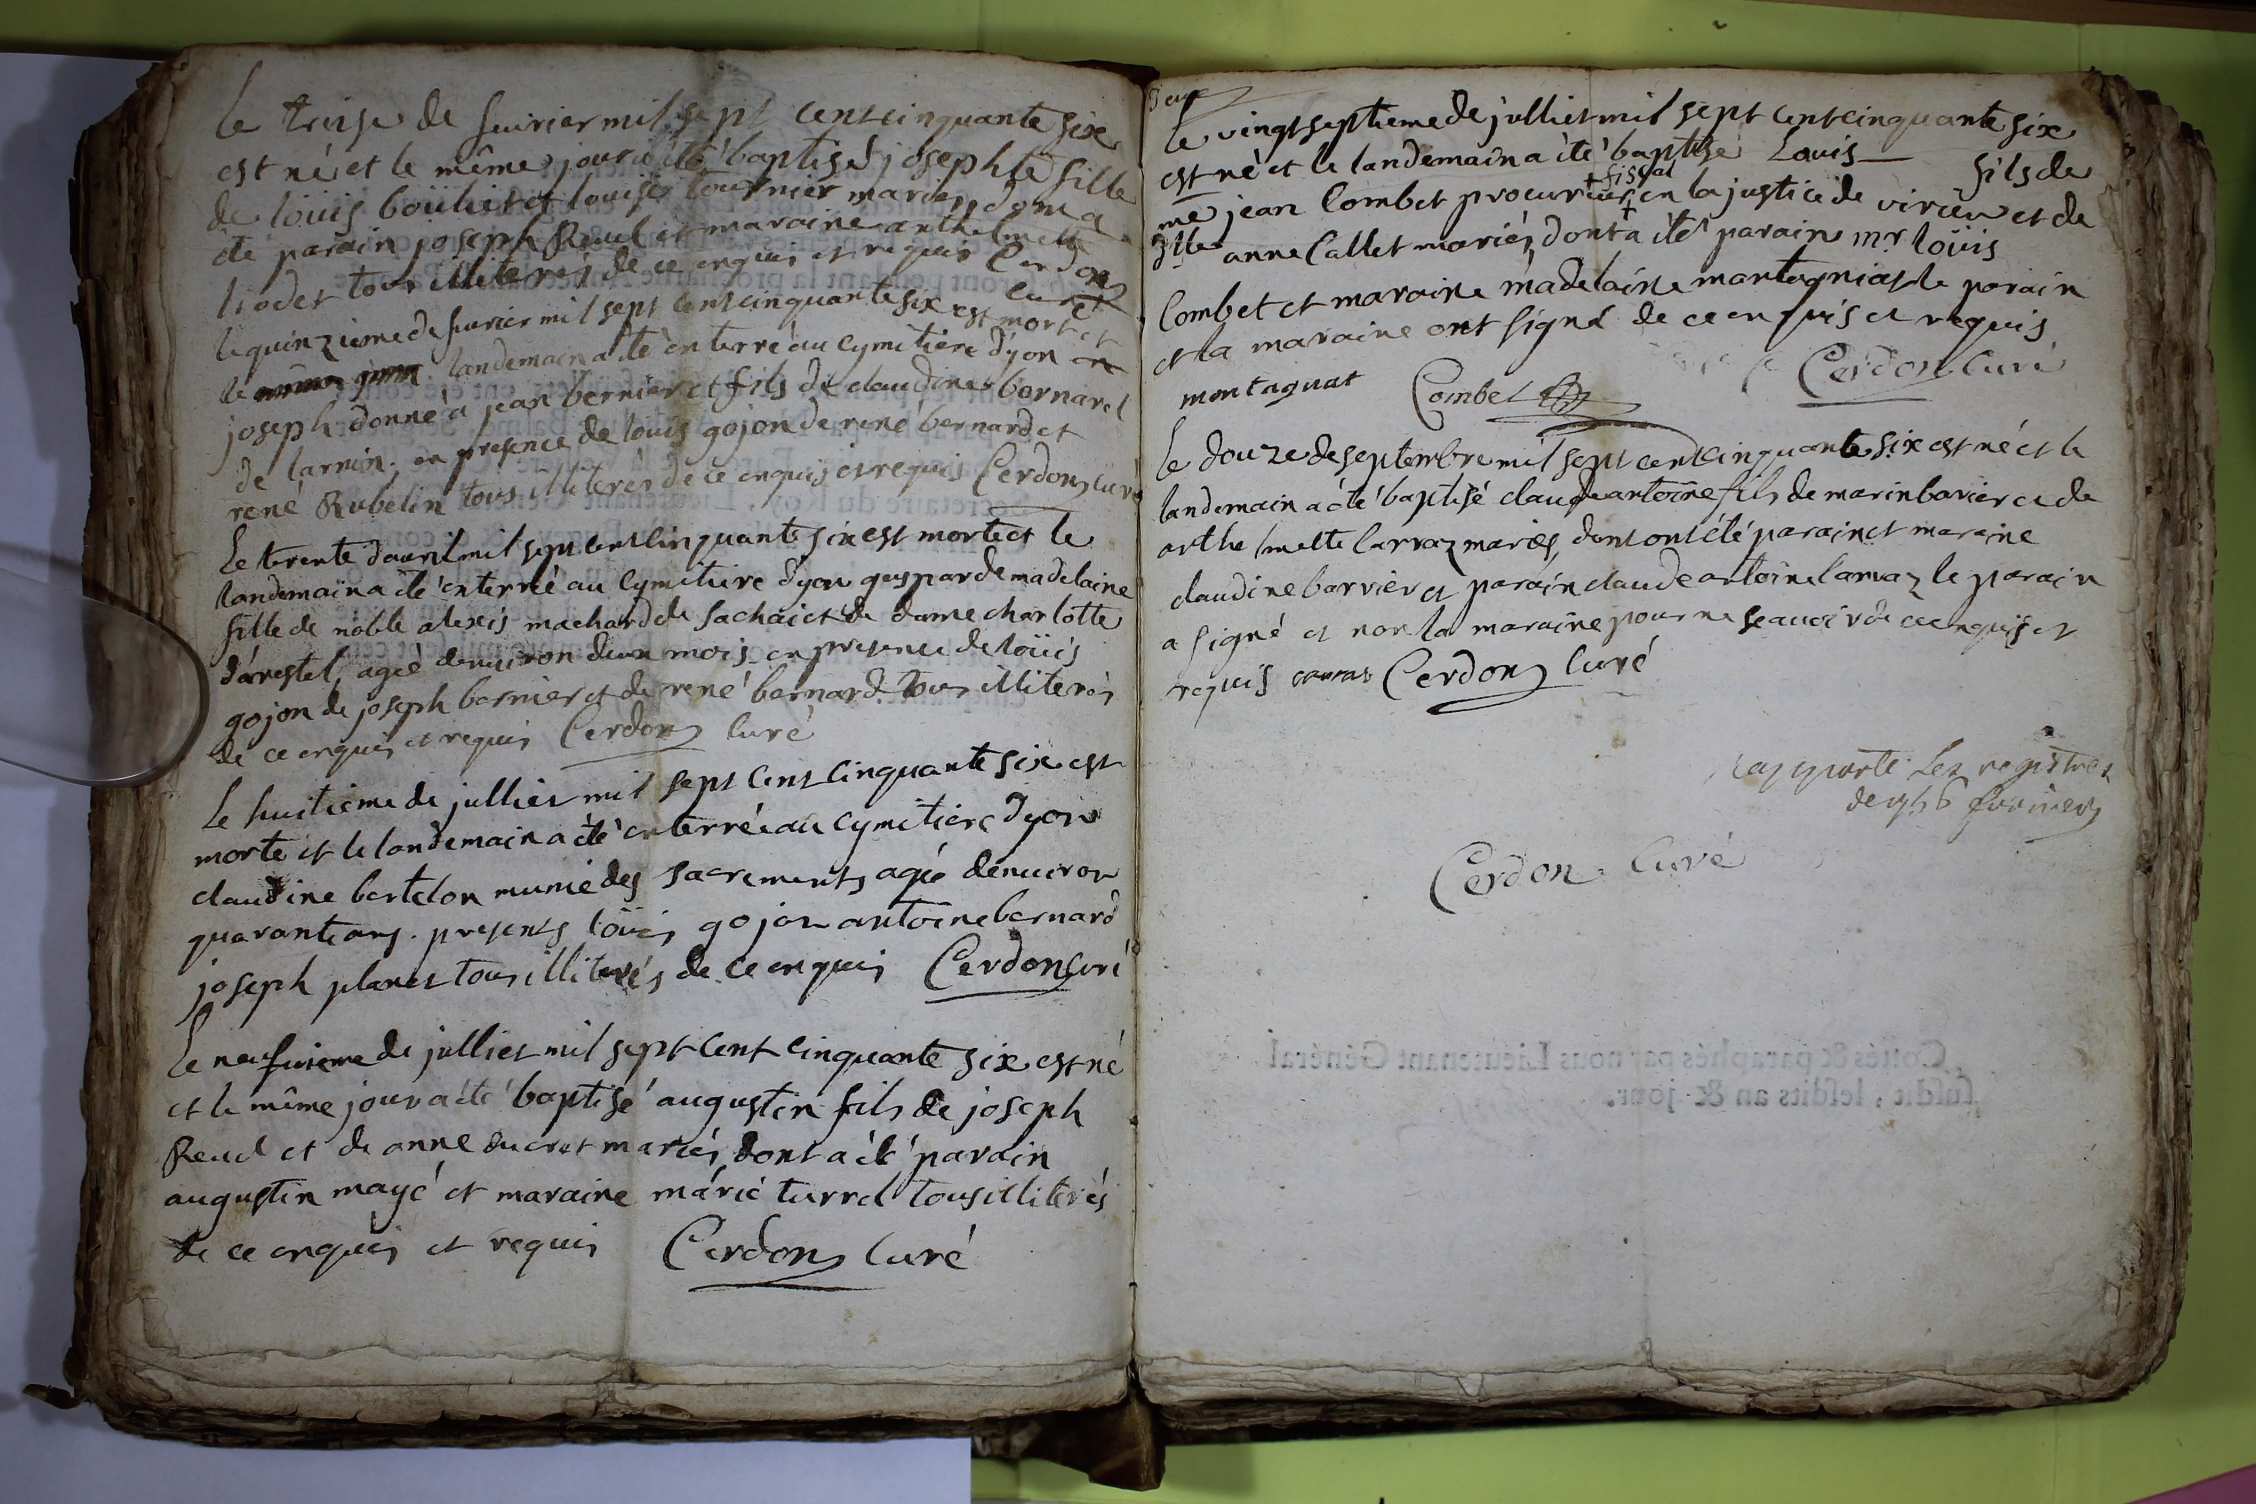 Le treise de feuvrier mil sept cent cinquante six
est né et le même jour a été baptisé josephte fille
de loüis boüliet et louise tournier mariés, dont a
été parain joseph Revel et maraine anthelmette
liodet tous illiterés de ce enquis et requis Cerdon
Curé
le quinzieme de feuvrier mil sept cent cinquante six est mort et
le landemain a été enterré au cymitiere dyon
joseph donné a jean bernier et fils de claudine bornarel
de larnin. en presence de louis gojon de rené bernard et
rené Rubelin tous illiterés de ce enquis et requis Cerdon Curé
Le trente davril mil sept cent cinquante six est morte et le
landemain a été enterré au Cymitiere dyon gasparde madelaine
fille de noble alexis machard de sachai et de dame charlotte
darestel, ageé denuiron deun mois en presence de loüis
gojon de joseph bernier et de rené bernard tous illiterés
de ce enquis et requis Cerdon Curé
Le huitieme de jullier mil sept Cent Cinquante six est
morte et le landemain a été enterrée au Cymitiere dyon
claudine bertelon munie des sacrements agée denuiron
quarante ans. presents loüis gojon antoine bernard
joseph planet tous illiterés de ce enquis Cerdon Curé
Le neufuieme de jullier mil sept Cent Cinquante six est né
et le même jour a été baptisé augustin fils de joseph
Revel et de anne ducret mariés, dont a été parain
augustin mayé et maraine marie turrel tous illiterés
de ce enquis et requis Cerdon Curé
Deux
le vingt septieme de julliet mil sept cent cinquante six
est né et le landemain a été baptisé Louis — fils de
+ fiscal
me jean Combet procureur + en la justice de virieu et de
dlle anne Callet mariés, dont a été parain mr loüis
Combet et maraine madelaine mantagniat le parain
et la maraine ont signé de ce enquis et requis
montagnat Combet Cerdon Curé
Le douze de septembre mil sept cent cinquante six est né et le
landemain a été baptisé claude antoine fils de marin barvier et de
anthelmette larvaz mariés, dont ont été parain et maraine
claudine barvier et parain claude antoine larvaz le parain
a signé et non la maraine pour ne sçauoir de ce enquis et
requis Cerdon Curé
rapporté Les registres
de 1756
Cerdon Curé
Cottés & paraphés par nous Lieutenant Général
susdit, lesdits an & jour.